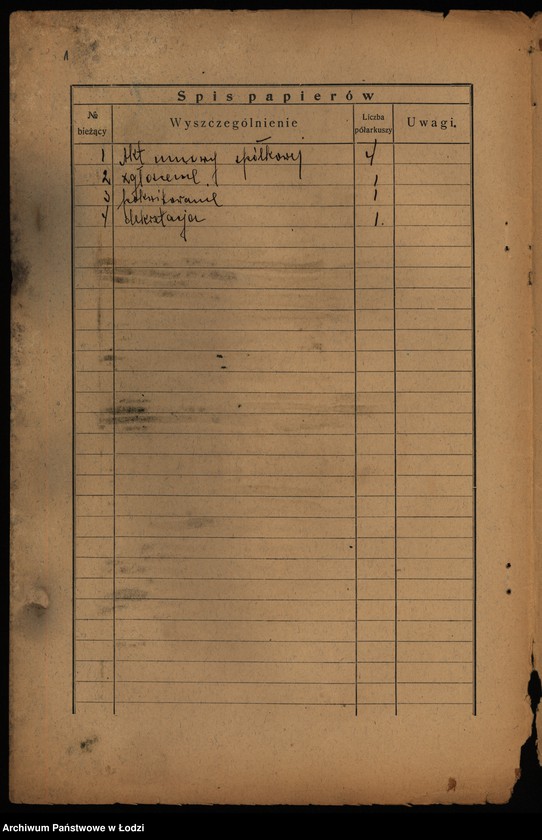 1
Spis papierów
№ bieżący Wyszczególnienie Liczba półarkuszy Uwagi.
1 Akt umowy spółkowej 4
2 zgłoszenie 1
3 pokwitowanie 1
4 deklaracja 1.
Archiwum Państwowe w Łodzi